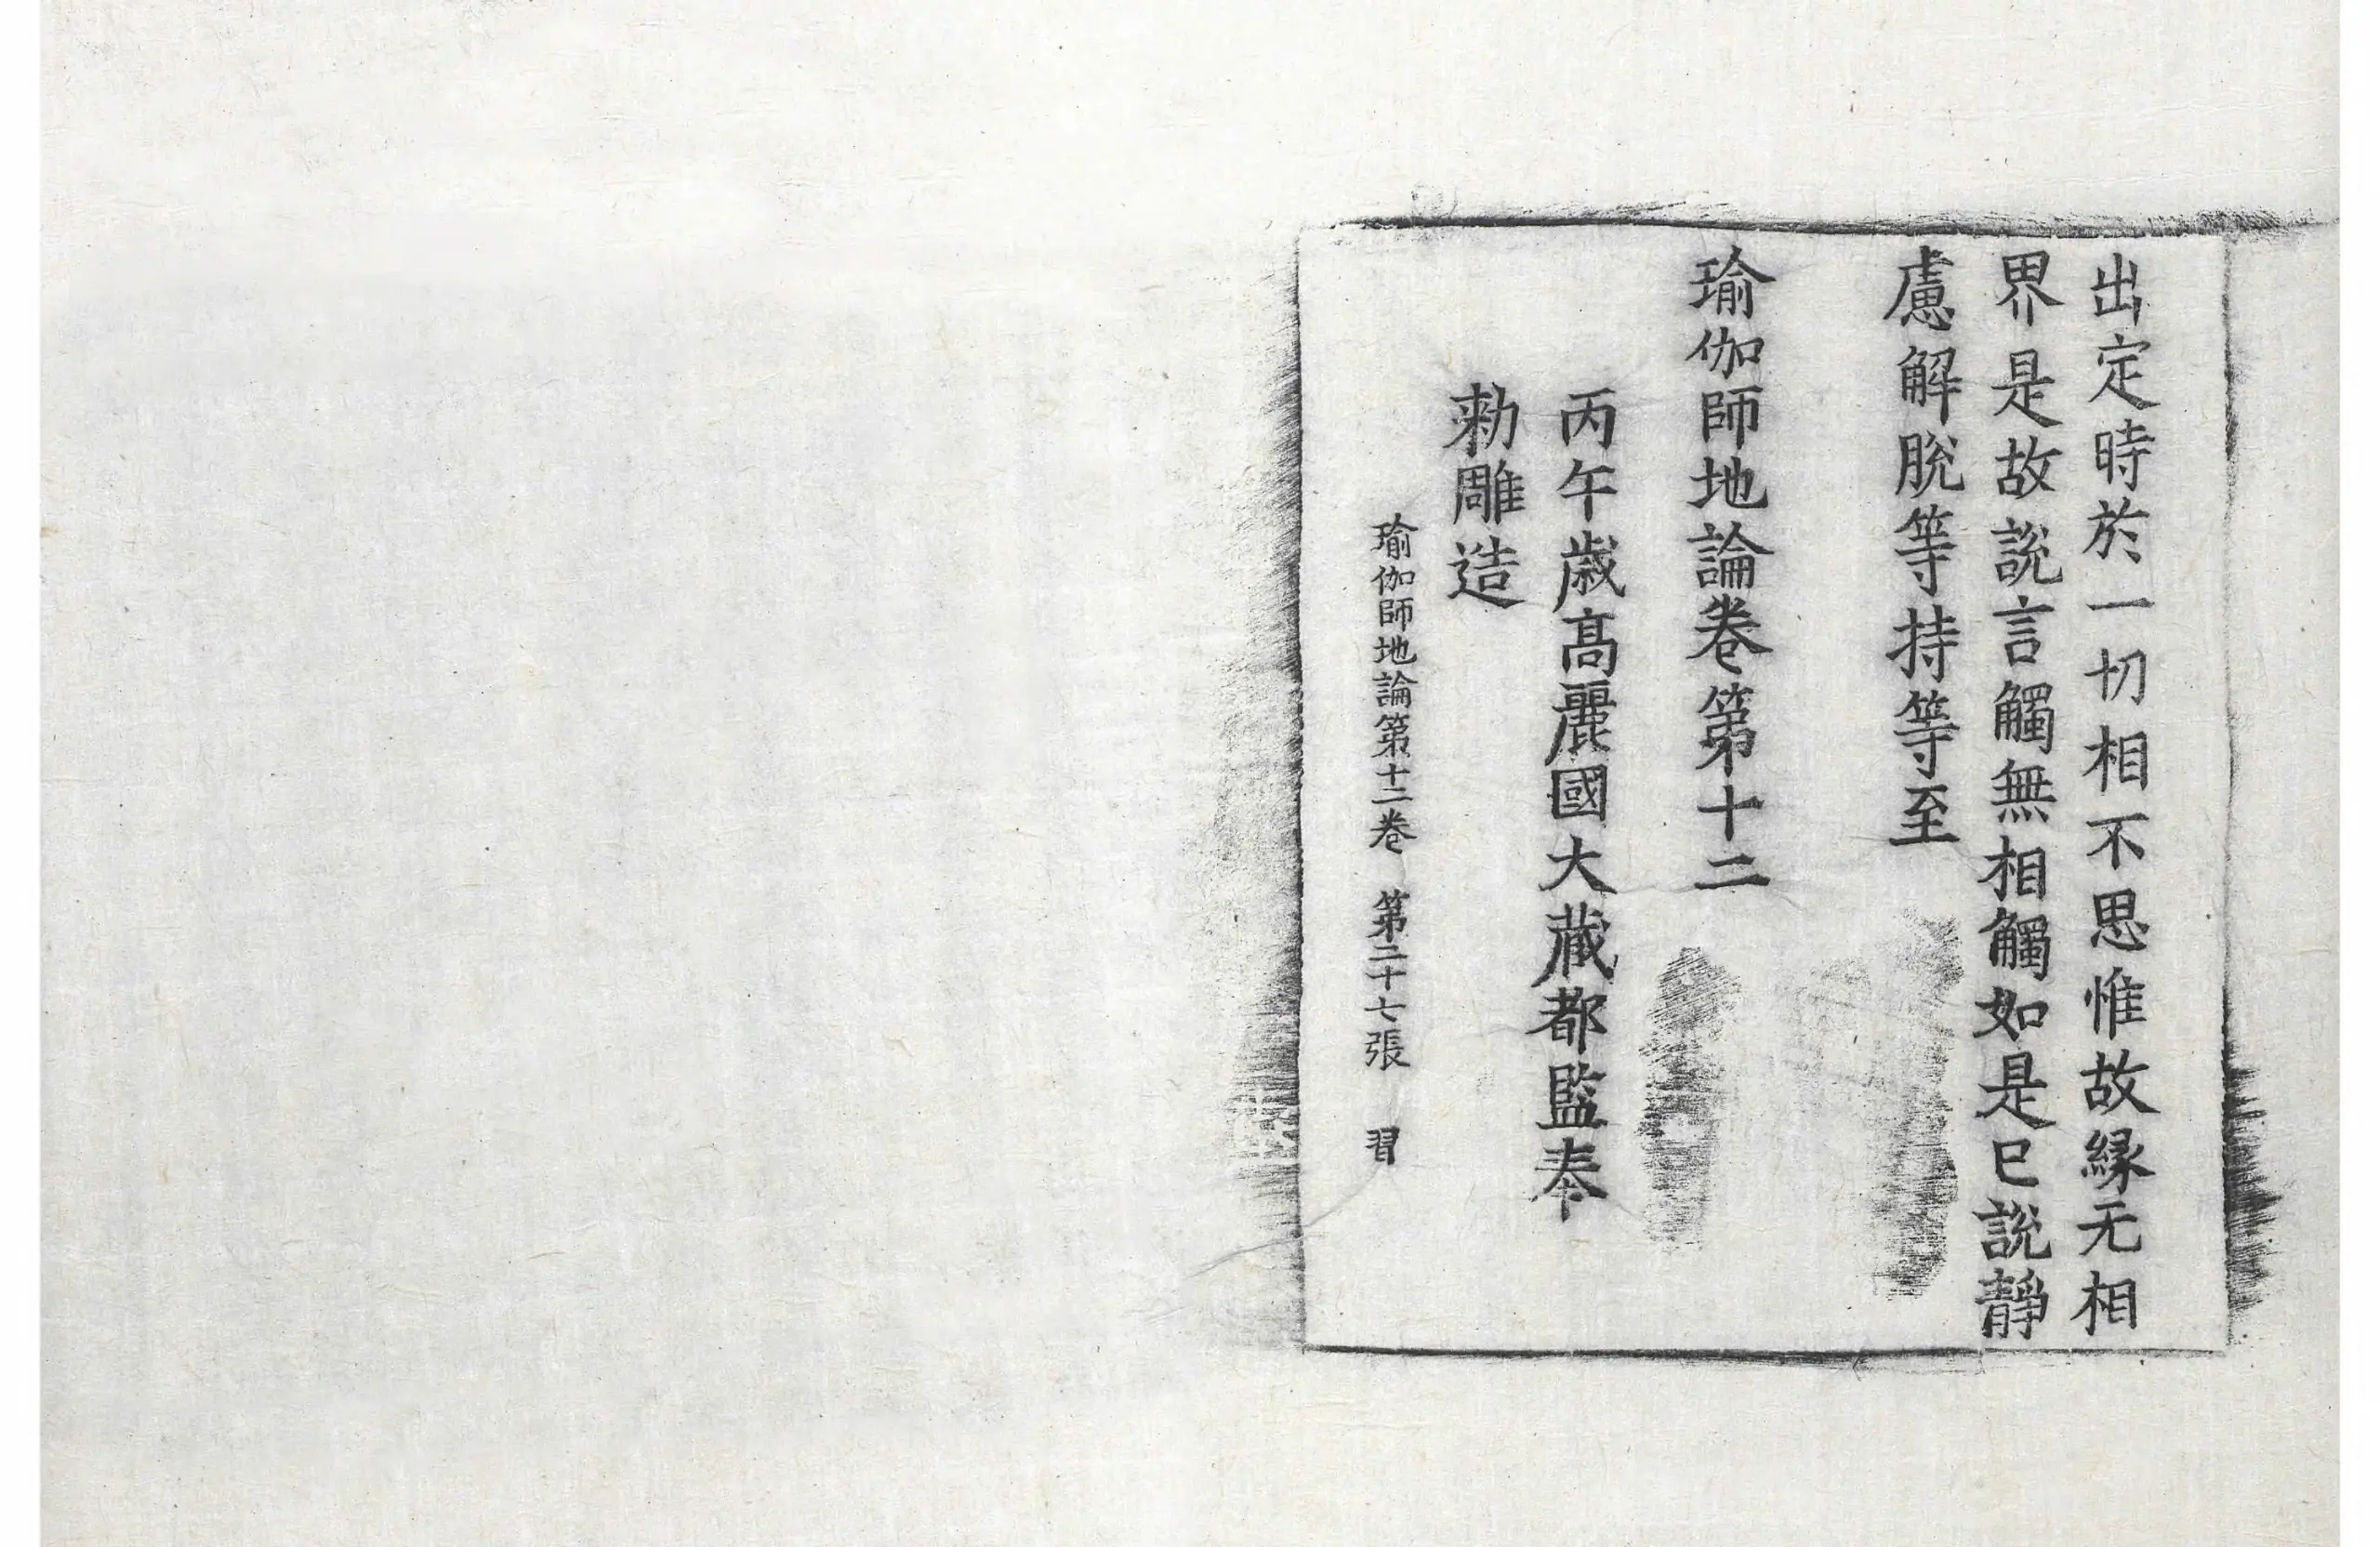 出定時於一切相不思惟故緣无相
界是故說言觸無相觸如是已說靜
慮解脫等持等至
瑜伽師地論卷第十二
丙午歲高麗國大藏都監奉
勅雕造
瑜伽師地論第十二卷 第二十七張 習